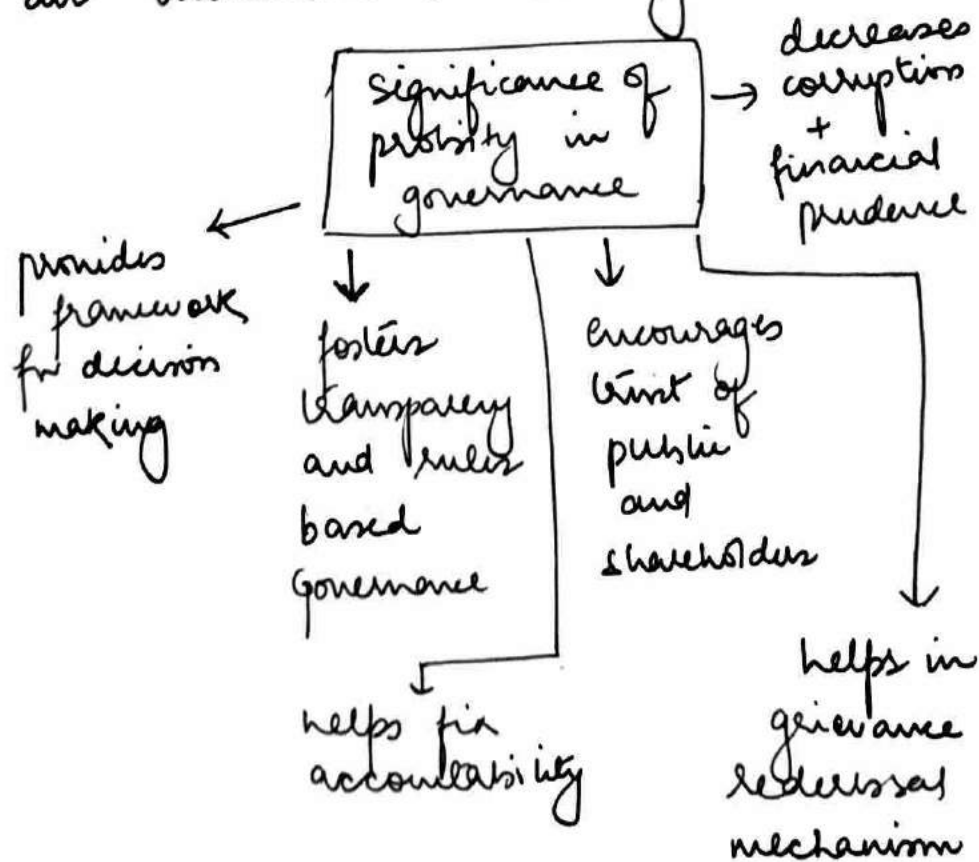 significance of
probity in
governance
decreases
corruption
+
financial
prudence
provides
framework
for decision
making
fosters
transparency
and rules
based
Governance
encourages
trust of
public
and
shareholders
helps fix
accountability
helps in
grievance
redressal
mechanism